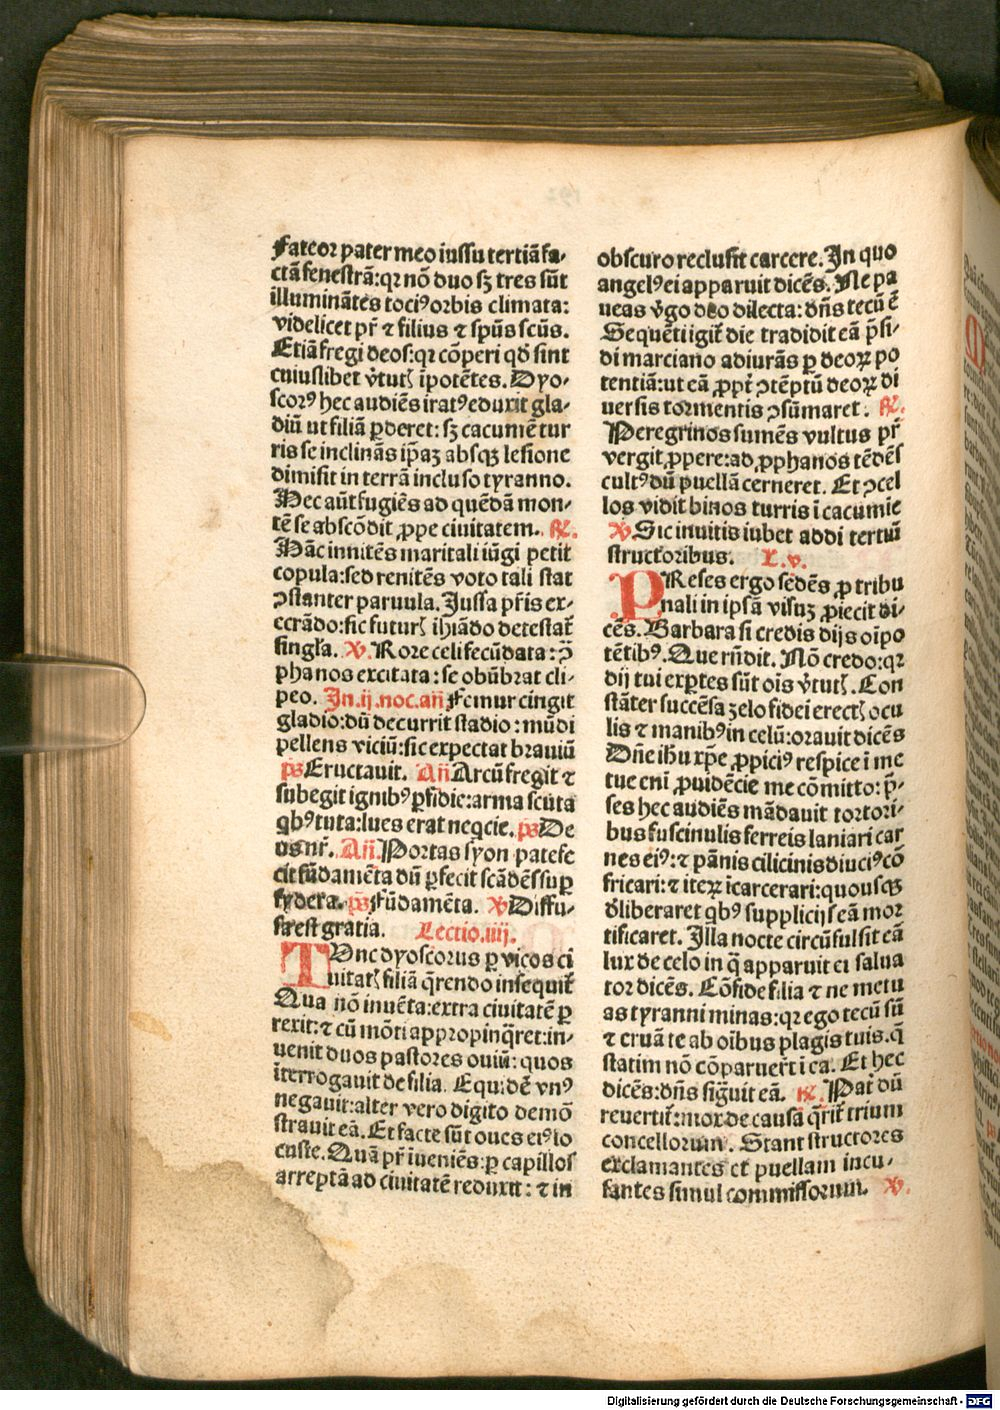 Fateor pater meo iussu tertiā fa-
ctā fenestrā: qꝛ nō duo sꝫ tres sūt
illuminātes toci⁹ orbis climata:
videlicet pr̄ ⁊ filius ⁊ spūs scūs.
Etiā fregi deos: qꝛ cōperi qd̄ sint
cuiuslibet v̄tutꝭ īpotētes. Dyo-
scor⁹ hec audiēs irat⁹ eduxit gla-
diū ut filiā ꝑderet: sꝫ cacumē tur
ris se inclinās ip̄aꝫ absqꝫ lesione
dimisit in terrā incluso tyranno.
Hec aūt fugiēs ad quēdā mon-
tē se abscōdit ꝓpe ciuitatem. ℟.
Hāc innitēs maritali iūgi petit
copula: sed renitēs voto tali stat
ↄstanter paruula. Jussa pr̄is ex-
ecrādo: sic futurꝭ ihiādo detestat᷑
singl̄a. ℣. Rore celi fecūdata: ↄ̄
phanos excitata: se obūbrat cli-
peo. In .ij. noc. añ. Femur cingit
gladio: dū decurrit stadio: mūdi
pellens viciū: sic expectat brauiū
ps̄ Eructauit. Añ Arcū fregit ⁊
subegit ignib⁹ ꝑfidie: arma scuta
qb⁹ tuta: lues erat neqcie. ps̄ De
us nr̄. Añ. Portas syon patefe
cit fūdamēta dū ꝑfecit scādēs suꝑ
sydera. ps̄ Fūdamēta. ℣ Diffu-
sa est gratia. Lectio .iiij.
TVnc dyoscorus ꝑ vicos ci
uitatꝭ filiā q̄rendo insequit᷑
Qua nō inuēta: extra ciuitatē ꝑ
rexit: ⁊ cū mōti appropinq̄ret: in-
uenit duos pastores ouiū: quos
īterrogauit de filia. Equidē vn⁹
negauit: alter vero digito demō
strauit eā. Et facte sūt oues ei⁹ lo
custe. Quā pr̄ iueniēs: ꝑ capillos
arreptā ad ciuitatē reduxit: ⁊ in
obscuro reclusit carcere. In quo
angel⁹ ei apparuit dicēs. Ne pa
ueas v̄go deo dilecta: dn̄s tecū ē
Sequēti igit᷑ die tradidit eā p̄si-
di marciano adiurās ꝑ deoꝝ po
tentiā: ut eā ꝓpt᷑ ↄtēptū deoꝝ di
uersis tormentis ↄsūmaret. ℟.
Peregrinos sumēs vultus pr̄
vergit ꝓpere: ad ꝓphanos tēdēs
cult⁹ dū puellā cerneret. Et ↄcel
los vidit binos turris ī cacumie
℣ Sic inuitis iubet addi tertiū
structoribus. L. v.
PReses ergo sedēs ꝓ tribu
nali in ipsā visuꝫ ꝓiecit di-
cēs. Barbara si credis dijs oīpo
tētib⁹. Que rn̄dit. Nō credo: qꝛ
dij tui exꝑtes sūt oīs v̄tutꝭ. Con
stāter succēsa zelo fidei erectꝭ ocu
lis ⁊ manib⁹ in celū: orauit dicēs
Dn̄e ihu xp̄e ꝓpici⁹ respice ī me
tue eni ꝓuidēcie me cōmitto: p̄-
ses hec audiēs mādauit tortori-
bus fuscinulis ferreis laniari car
nes ei⁹: ⁊ pānis cilicinis diuci⁹ cō
fricari: ⁊ iteꝝ īcarcerari: quousqꝫ
d̄liberaret qb⁹ supplicijs eā mor
tificaret. Illa nocte circūfulsit eā
lux de celo in q̄ apparuit ei salua
tor dicēs. Cōfide filia ⁊ ne metu
as tyranni minas: qꝛ ego tecū sū
⁊ eruā te ab oībus plagis tuis. q̄
statim nō cōparuer̄t ī ea. Et hec
dicēs: dn̄s sig̅uit eā. ℟. Pat᷑ dū
reuertit᷑: mox de causā q̄rit᷑ trium
concellorum. Stant structores
exclamantes et puellam incu-
santes simul commissorum. ℣.
Digitalisierung gefördert durch die Deutsche Forschungsgemeinschaft - DFG